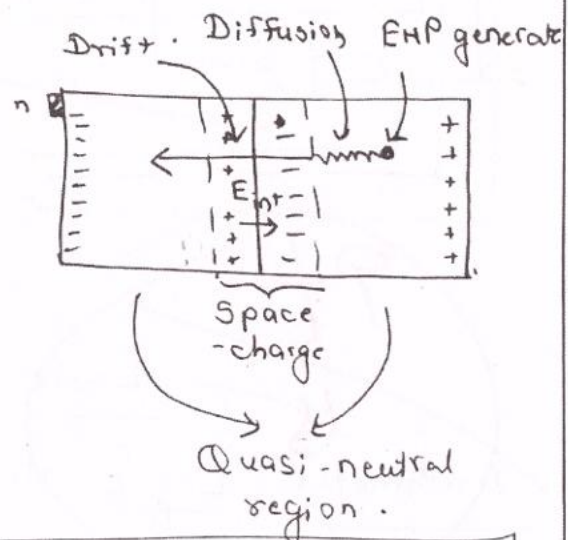 Drift. Diffusion EHP generate
n
E int
Space
-charge
Quasi-neutral
region.